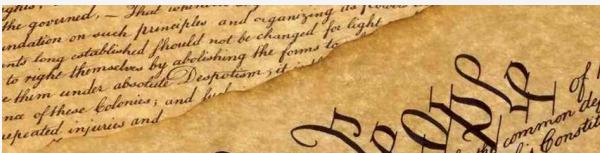 the governed, — That whenever
ndation on such principles and organizing its powers
nts long established should not be changed for light
to right themselves by abolishing the forms to
e them under absolute Despotism; it is
nce of these Colonies; and such
repeated injuries and
We
People
of
the common def
this Constit